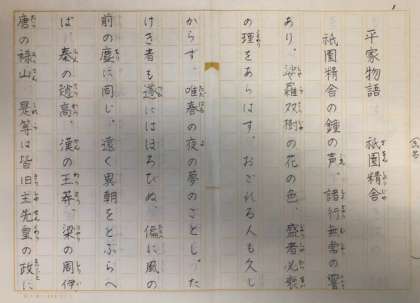 平家物語　祇園精舎
祇園精舎の鐘の声、諸行無常の響
あり。娑羅双樹の花の色、盛者必衰
の理をあらはす。おごれる人も久し
からず。唯春の夜の夢のごとし。た
けき者も遂にはほろびぬ、偏に風の
前の塵に同じ。遠く異朝をとぶらへ
ば、秦の趙高、漢の王莽、梁の周伊
唐の禄山、是等は皆旧主先皇の政に